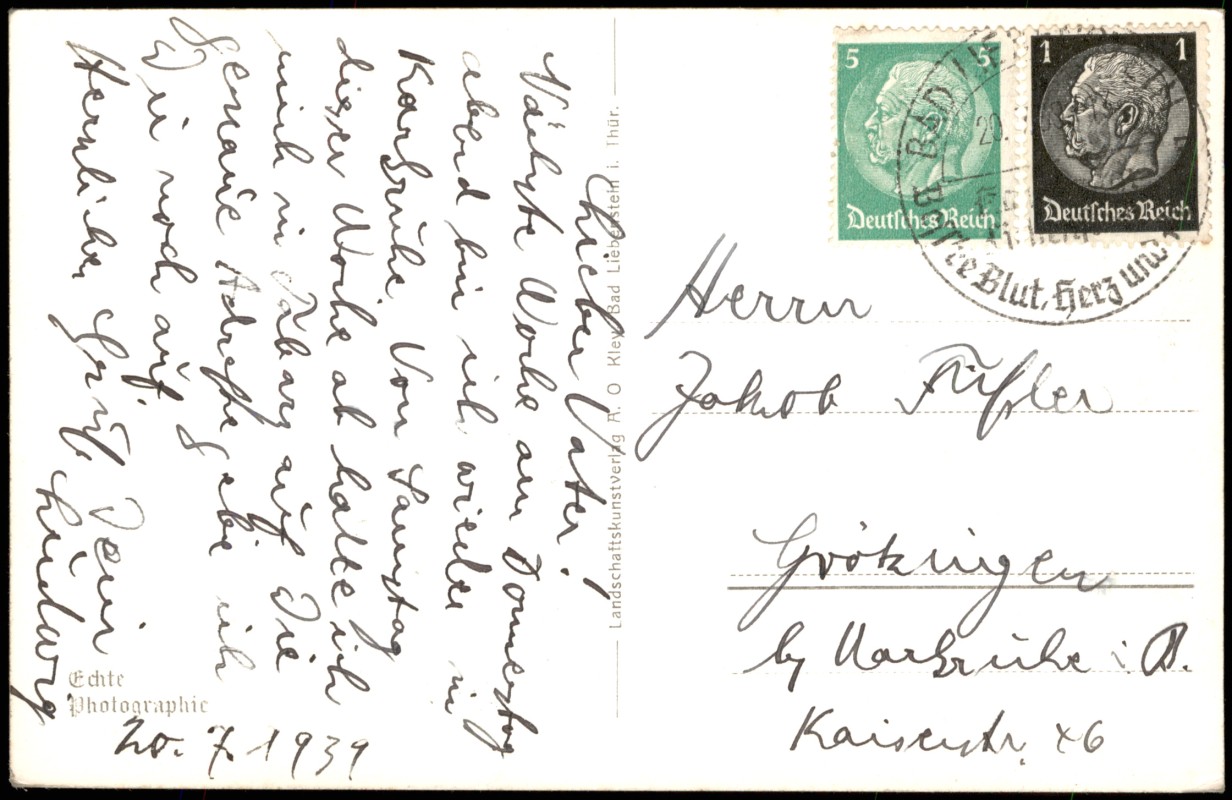 Lieber Vater!
Nächste Woche am Donnerstag
abend bin ich wieder in
Karlsruhe. Von Samstag
dieser Woche ab halte ich
mich in Tabarz auf. Die
genaue Adresse gebe ich
Dir noch auf.
Herzlichen Gruß Dein
Ludwig.
20. 7. 1939
Echte
Photographie
Landschaftskunstverlag A. O Kley Bad Liebenstein i. Thür.
5 5
Deutsches Reich
1 1
Deutsches Reich
BAD
20.
Blut, Herz und
Herrn
Jakob Füßler
Grötzingen
by Karlsruhe i. B.
Kaiserstr. 46